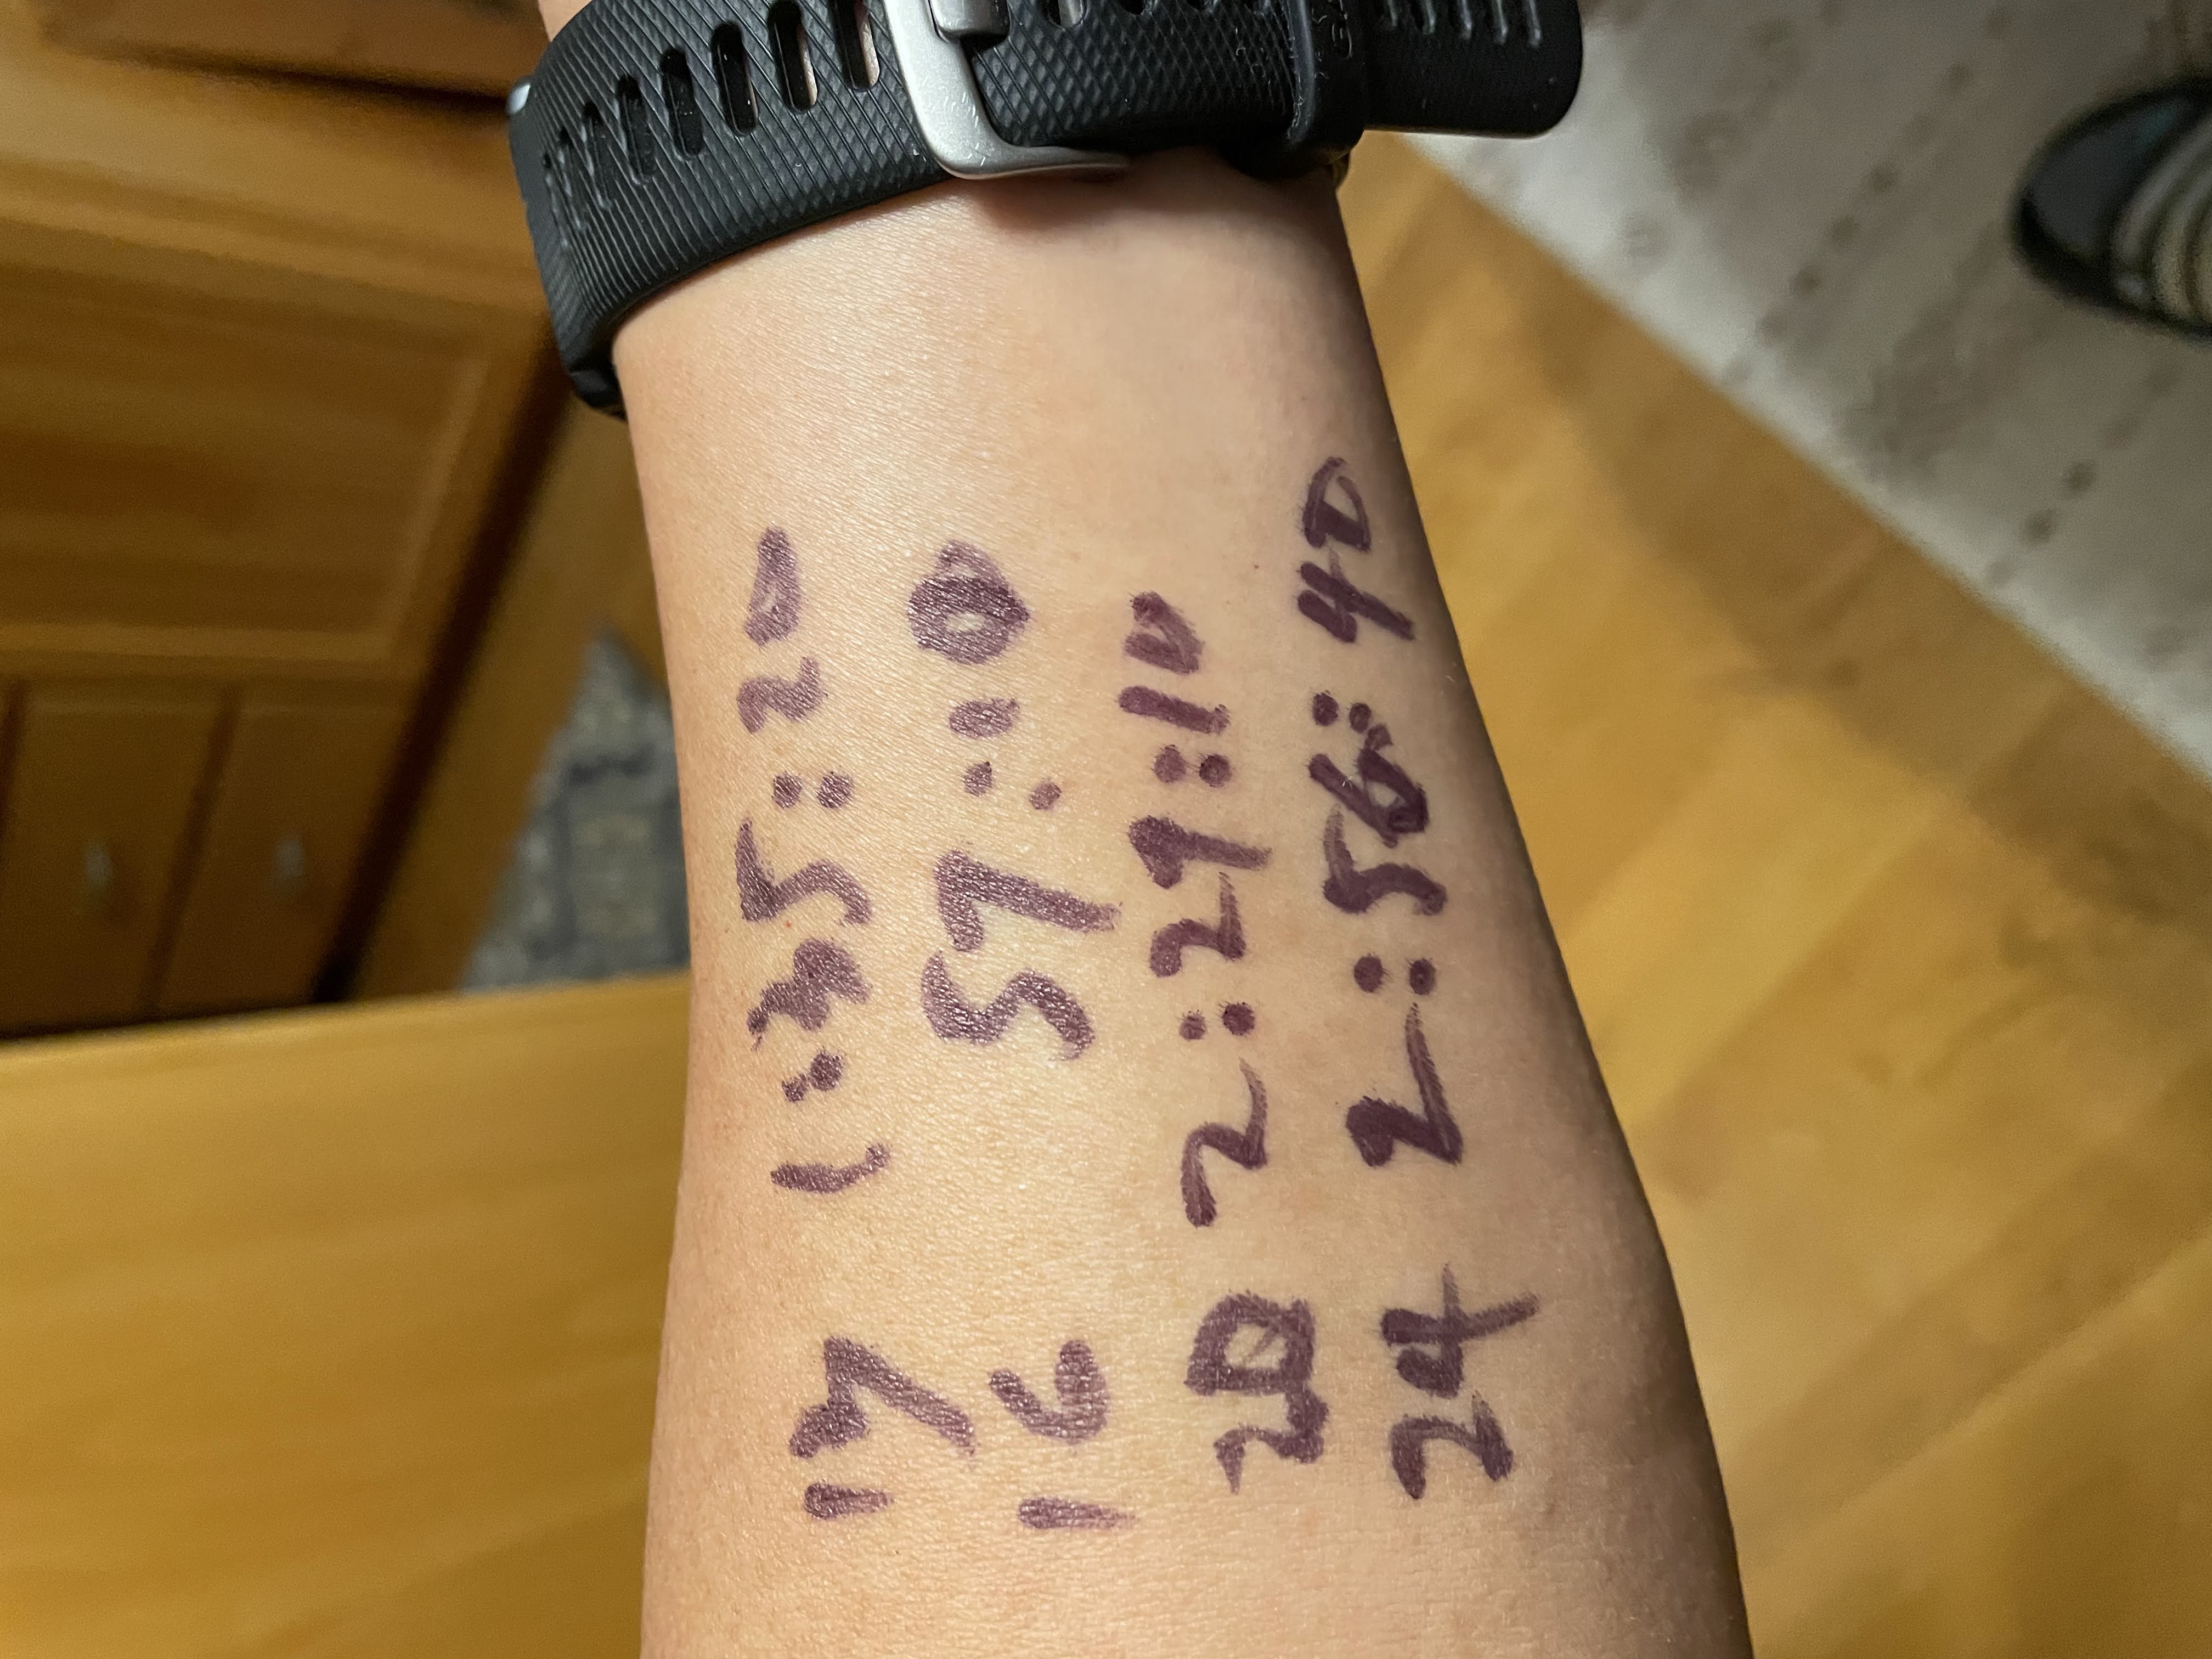 13 1:35:20
16 57:10
20 2:29:10
24 2:56:40